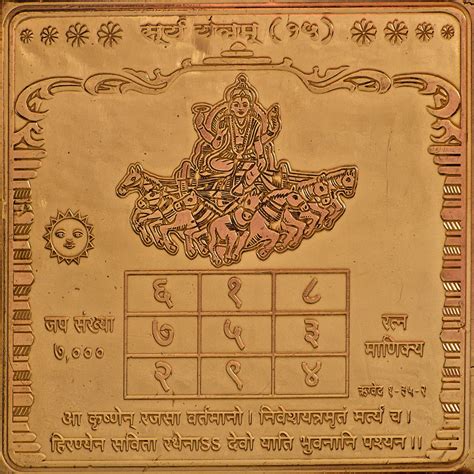 सूर्य यंत्रम् (१५)
६ १ ८
जप संख्या
७,०००
७ ५ ३
रत्न
माणिक्य
२ ९ ४
ऋग्वेद १-३५-२
आ कृष्णेन् रजसा वर्तमानो। निवेशयन्नमृतं मर्त्यं च।
हिरण्येन सविता रथेनाSS देवो याति भुवनानि पश्यन्॥